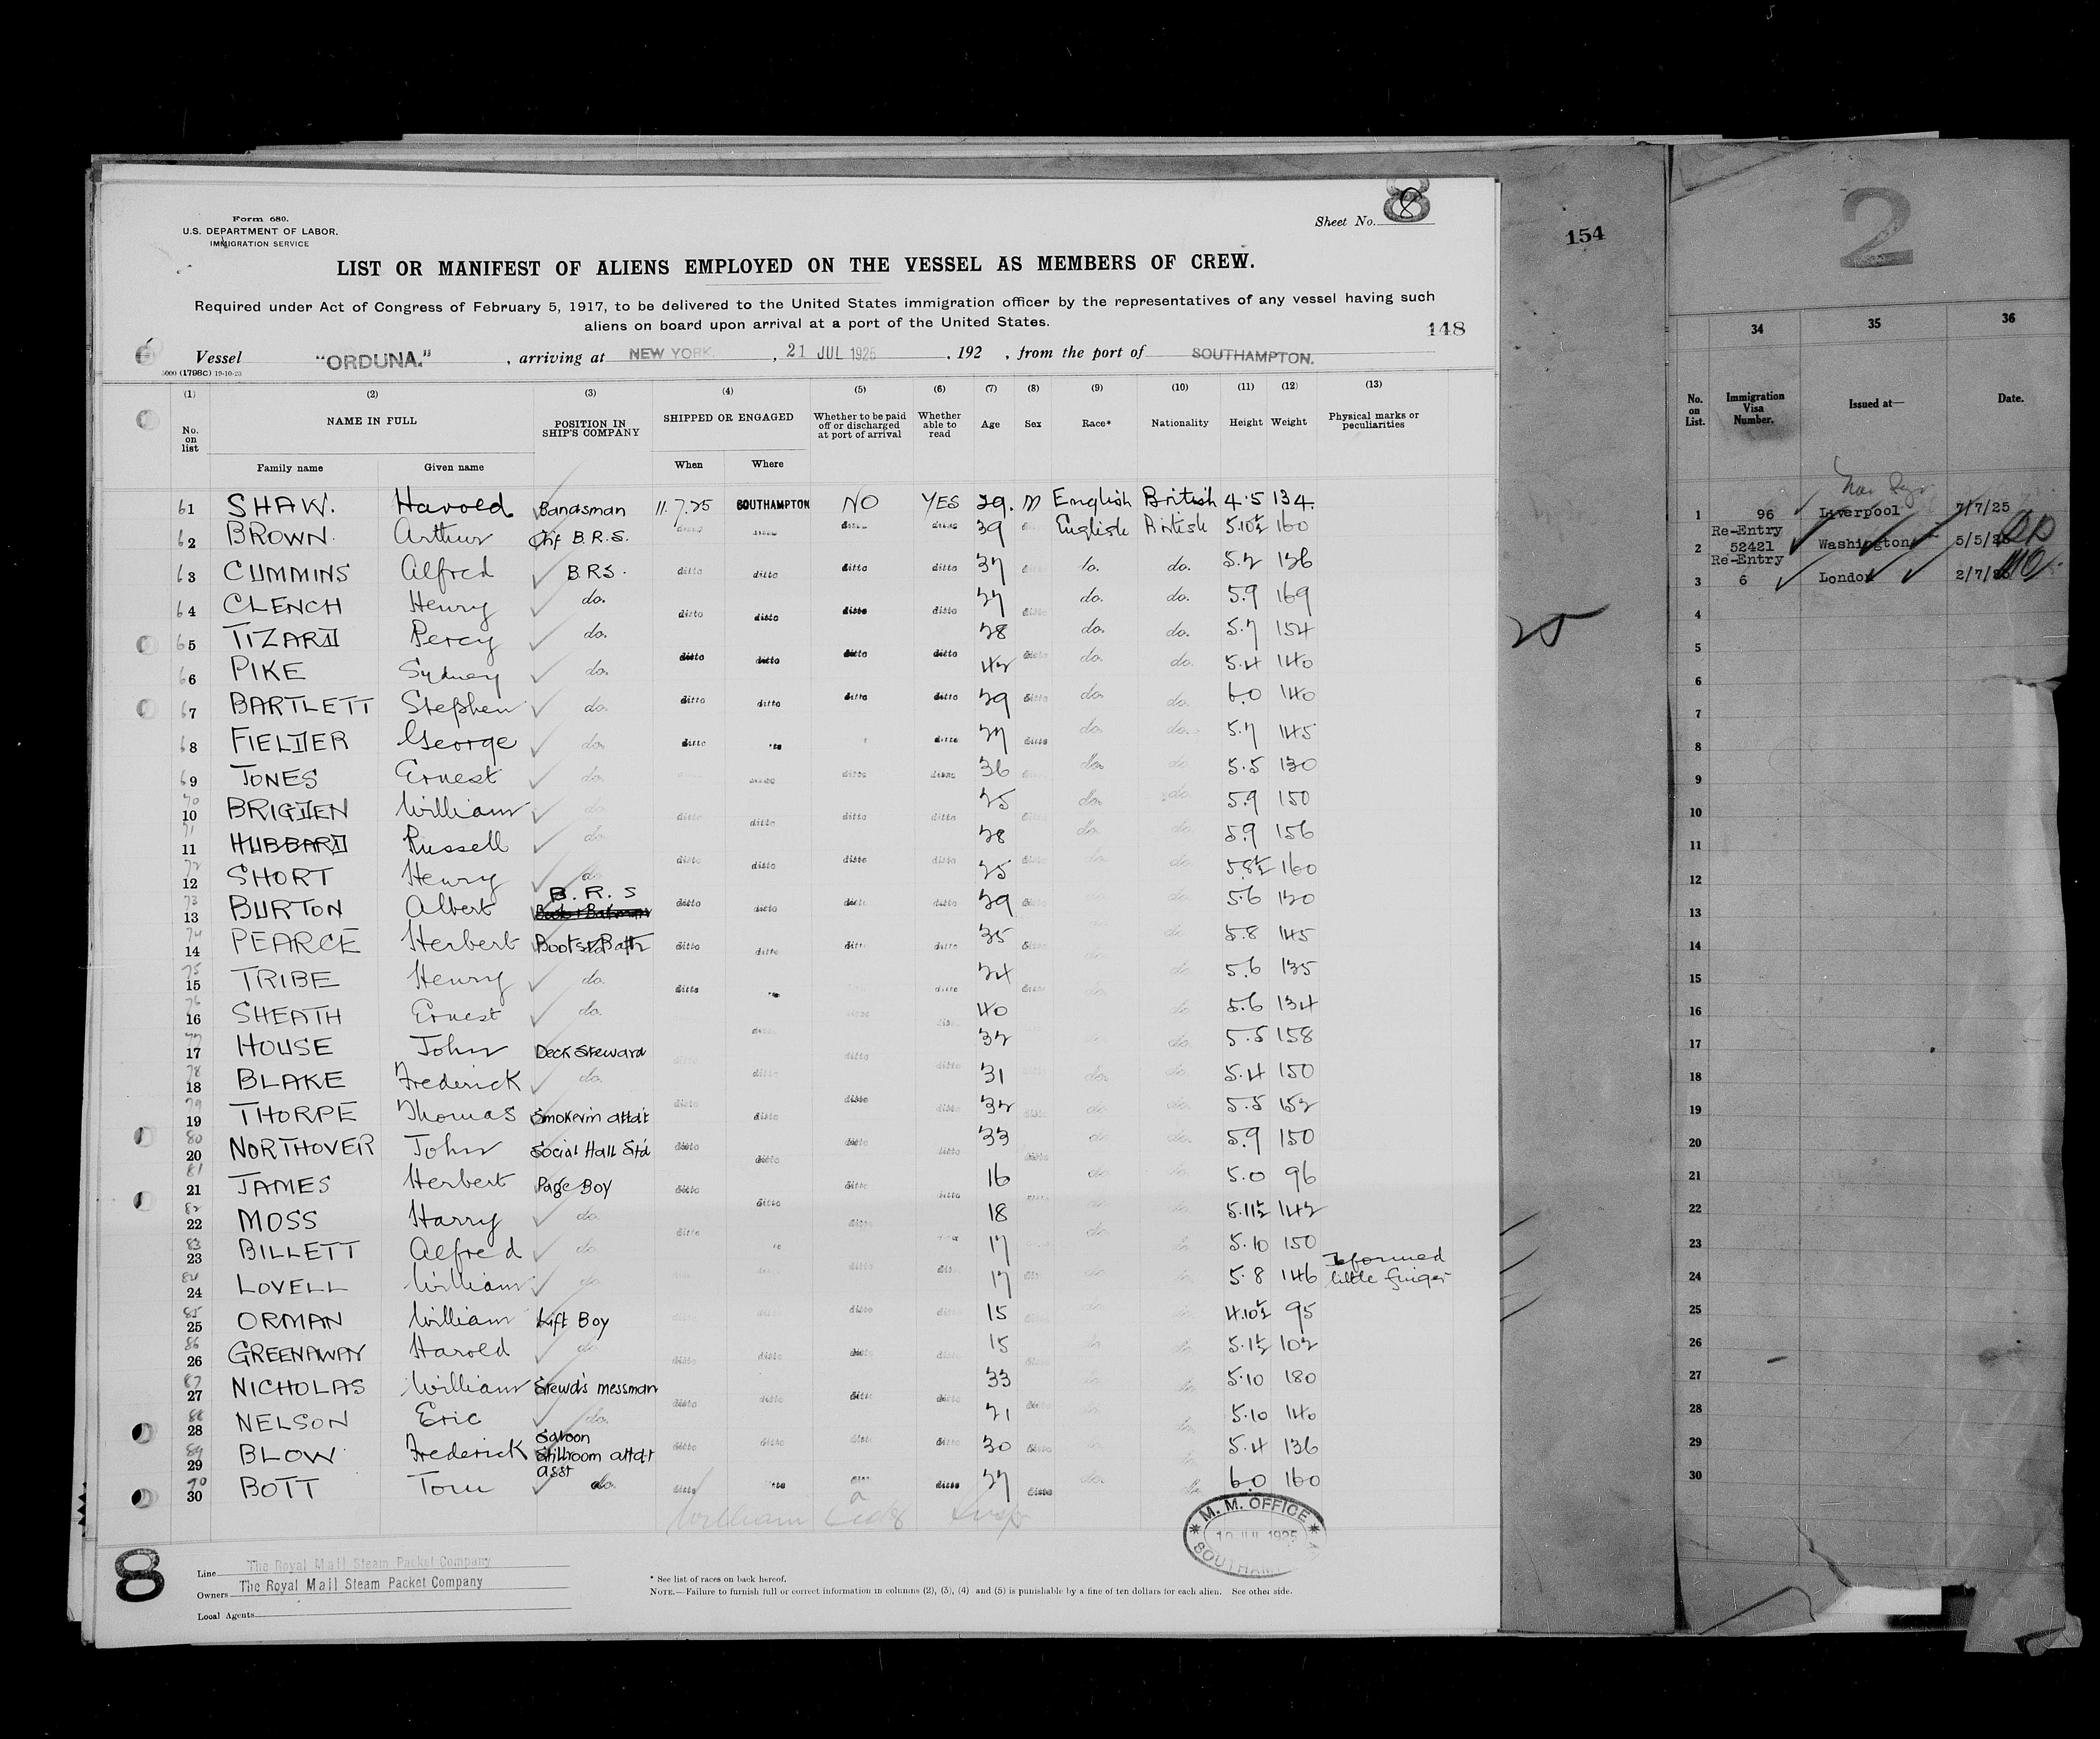 Form 680.
U.S. DEPARTMENT OF LABOR.
IMMIGRATION SERVICE
Sheet No. 8
LIST OR MANIFEST OF ALIENS EMPLOYED ON THE VESSEL AS MEMBERS OF CREW.
Required under Act of Congress of February 5, 1917, to be delivered to the United States immigration officer by the representatives of any vessel having such
aliens on board upon arrival at a port of the United States.
148
Vessel "ORDUNA." , arriving at NEW YORK. , 21 JUL 1925 , 192 , from the port of SOUTHAMPTON.
5000 (1798C) 19-10-23
(1) (2) (3) (4) (5) (6) (7) (8) (9) (10) (11) (12) (13)
No. on list NAME IN FULL POSITION IN SHIP'S COMPANY SHIPPED OR ENGAGED Whether to be paid off or discharged at port of arrival Whether able to read Age Sex Race* Nationality Height Weight Physical marks or peculiarities
Family name Given name When Where
61 SHAW. Harold Bandsman 11.7.25 SOUTHAMPTON NO YES 29. M English British 4.5 134.
62 BROWN. Arthur Chf B.R.S. 39 English British 5.10½ 160
63 CUMMINS Alfred B.R.S. ditto ditto ditto ditto 37 do. do. 5.2 136
64 CLENCH Henry do. ditto ditto ditto ditto 27 ditto do. do. 5.9 169
65 TIZARD Percy do. 28 do. do. 5.7 154
66 PIKE Sydney do. ditto ditto ditto ditto 42 ditto do. do. 5.4 140
67 BARTLETT Stephen do. ditto ditto ditto ditto 29 ditto do. do. 6.0 140
68 FIELDER George do. ditto ditto 27 ditto do. do. 5.7 145
69 JONES Ernest do. ditto ditto ditto 36 do. do 5.5 130
70 10 BRIGDEN William do ditto ditto ditto ditto 25 do. do. 5.9 150
71 11 HUBBARD Russell do 28 do. do 5.9 156
72 12 SHORT Henry do ditto ditto ditto ditto 25 do. 5.8½ 160
B.R.S
73 13 BURTON Albert ditto ditto ditto ditto 29 ditto 5.6 120
74 14 PEARCE Herbert ditto ditto ditto ditto 35 do 5.8 145
75 15 TRIBE Henry do. ditto ditto 24 do 5.6 135
76 16 SHEATH Ernest do. 40 do 5.6 134
77 17 HOUSE John Deck Steward ditto ditto 32 do. 5.5 158
78 18 BLAKE Frederick do. ditto ditto 31 do. do. 5.4 150
79 19 THORPE Thomas Smokerm attdt ditto ditto ditto ditto 32 do do. 5.5 152
80 20 NORTHOVER John Social Hall Std ditto ditto ditto ditto 33 do do. 5.9 150
81 21 JAMES Herbert Page Boy ditto ditto ditto ditto 16 do 5.0 96
82 22 MOSS Harry do. ditto ditto 18 5.11½ 142
83 23 BILLETT Alfred do 17 do. 5.10 150
84 24 LOVELL William do ditto 17 5.8 146 Deformed little finger
85 25 ORMAN William Lift Boy ditto ditto 15 4.10½ 95
86 26 GREENAWAY Harold do ditto ditto ditto ditto 15 5.1½ 102
87 27 NICHOLAS William Stewd's messman ditto ditto ditto 33 5.10 180
88 28 NELSON Eric do. 21 5.10 140
89 29 BLOW Frederick Saloon Stillroom attdt asst ditto ditto ditto ditto 30 ditto 5.4 136
90 30 BOTT Tom do. ditto ditto 27 ditto do. 6.0 160
William
M. M. OFFICE
10 JUL 1925
8
Line The Royal Mail Steam Packet Company
Owners The Royal Mail Steam Packet Company
Local Agents
* See list of races on back hereof.
NOTE.—Failure to furnish full or correct information in columns (2), (3), (4) and (5) is punishable by a fine of ten dollars for each alien. See other side.
154
25
2
34 35 36
No. on List. Immigration Visa Number. Issued at— Date.
1 96 Liverpool 7/7/25
Re-Entry
2 52421 Washington
Re-Entry
3 6 London
4
5
6
7
8
9
10
11
12
13
14
15
16
17
18
19
20
21
22
23
24
25
26
27
28
29
30